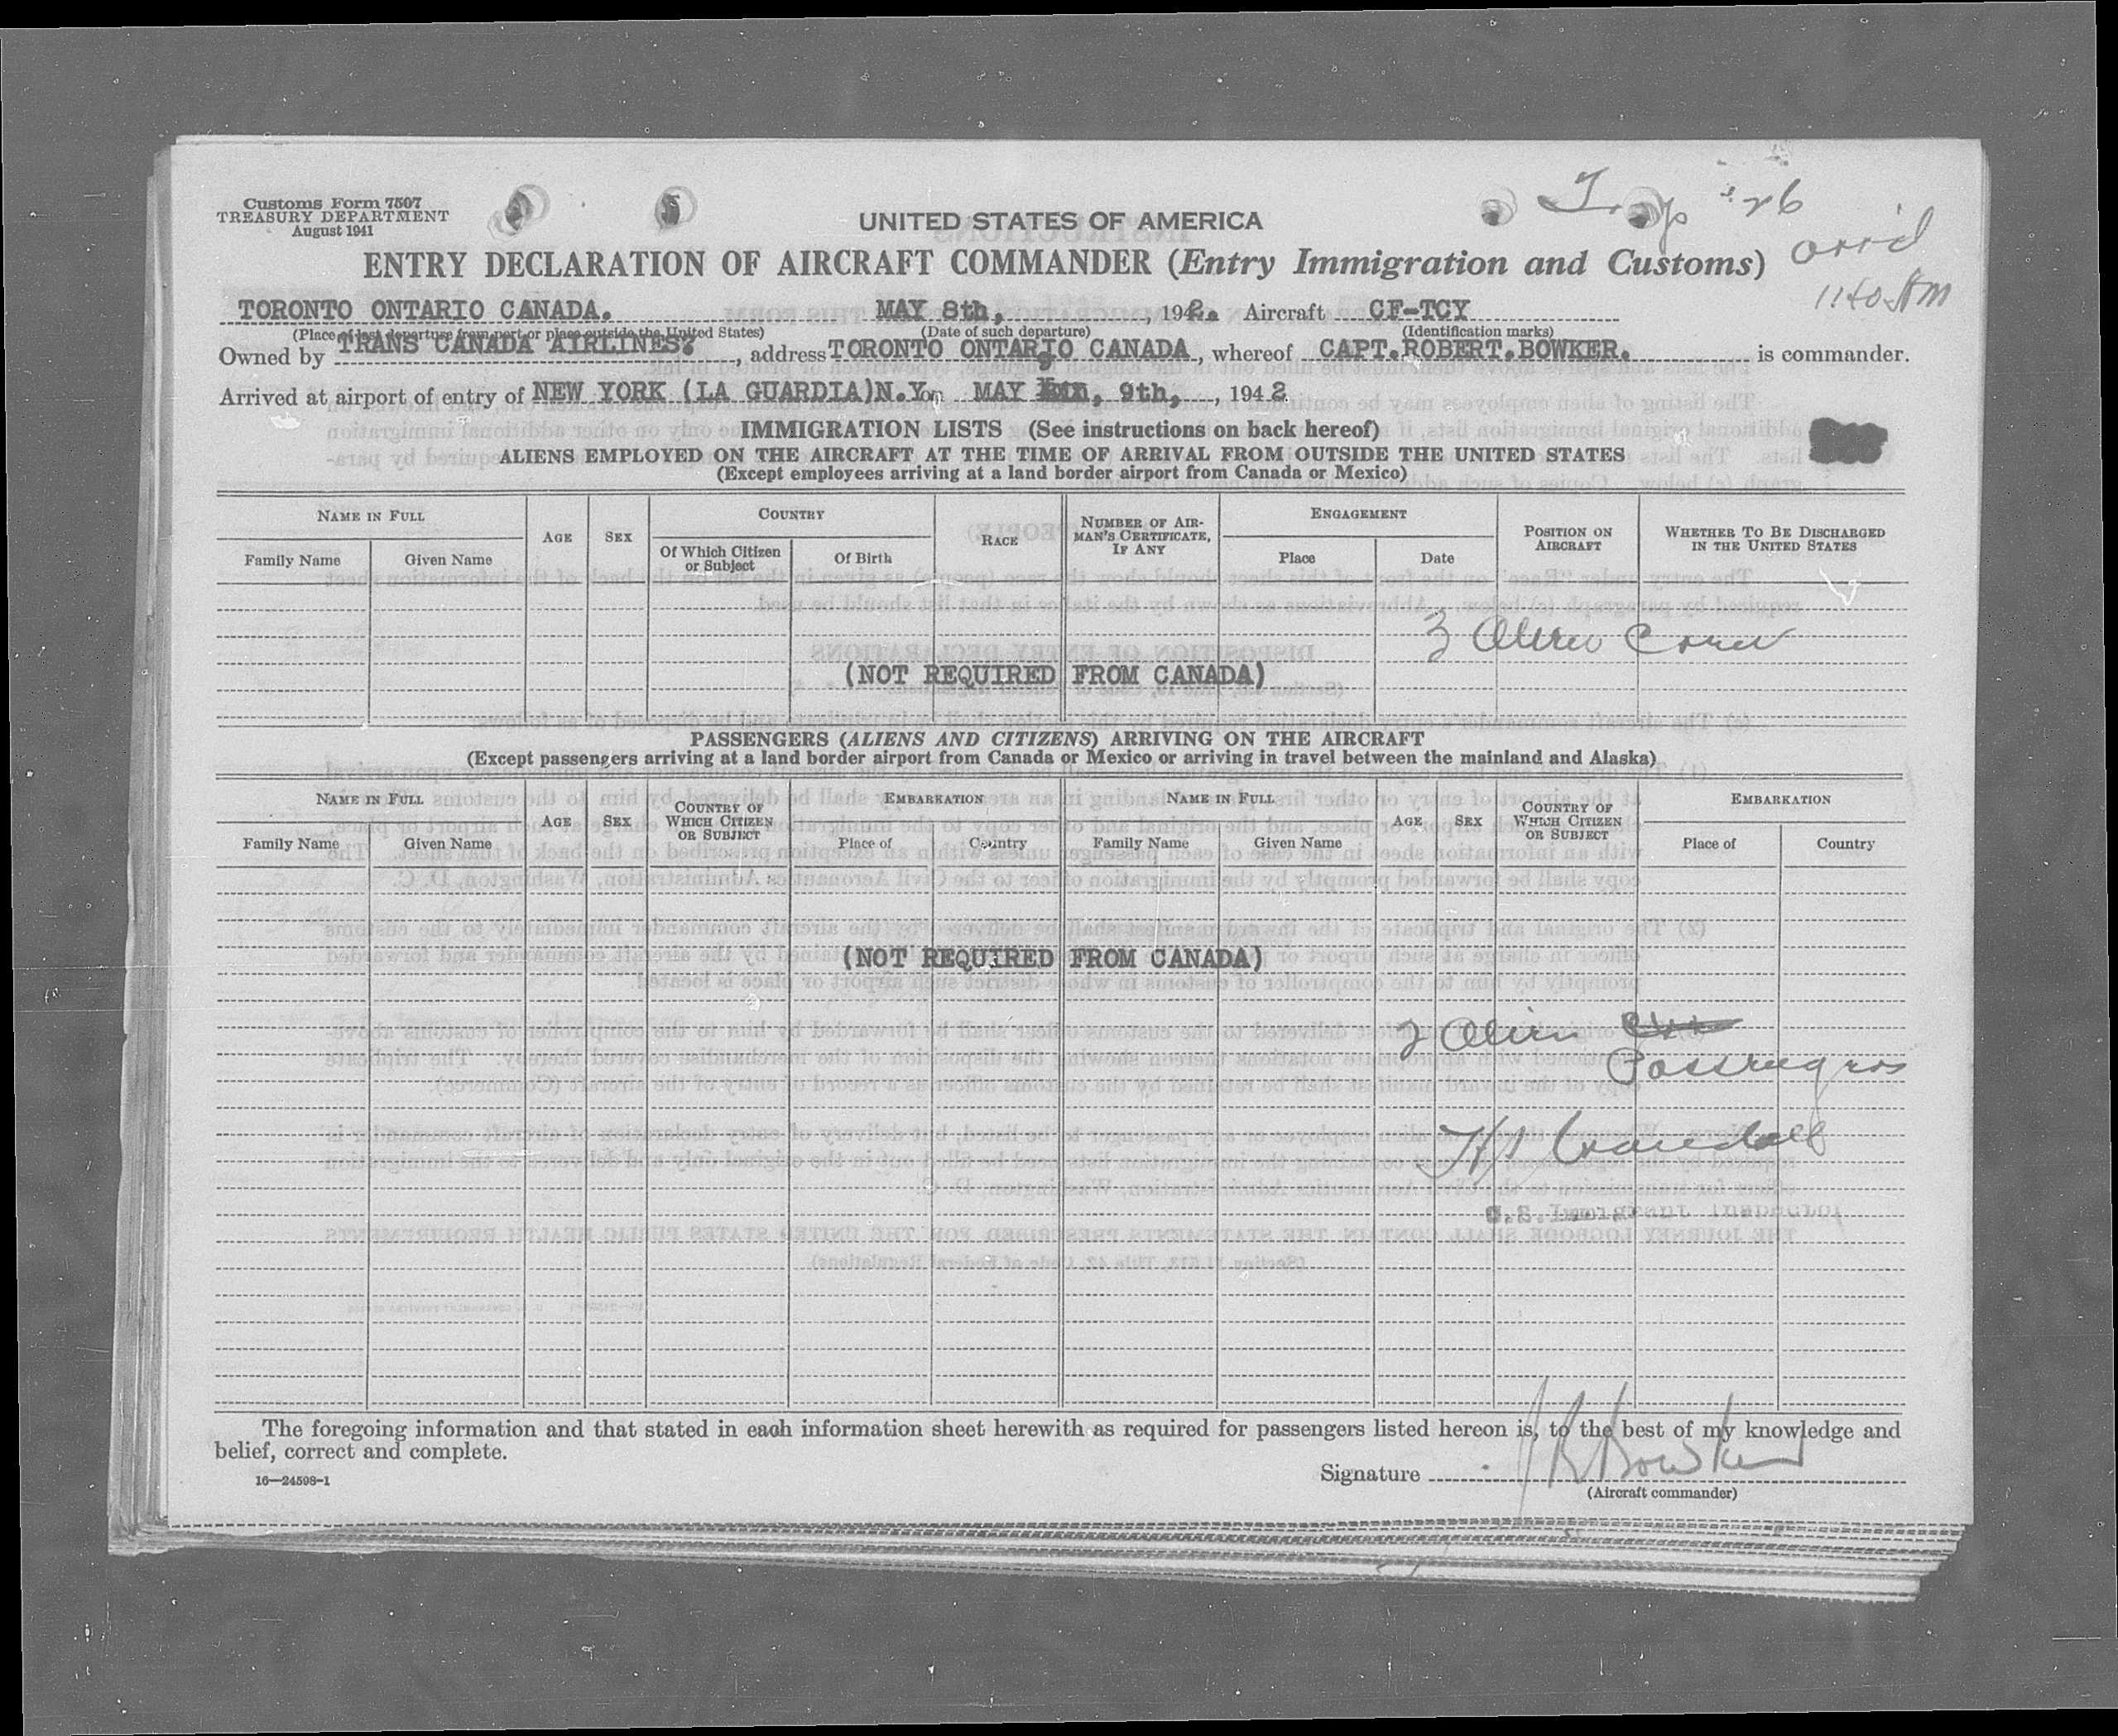 Customs Form 7507
TREASURY DEPARTMENT
August 1941
UNITED STATES OF AMERICA
Trip #26
ENTRY DECLARATION OF AIRCRAFT COMMANDER (Entry Immigration and Customs)
arrid
1140 AM
TORONTO ONTARIO CANADA. MAY 8th, , 1942. Aircraft CF-TCY
(Place of last departure from port or place outside the United States) (Date of such departure) (Identification marks)
Owned by TRANS CANADA AIRLINES? , address TORONTO ONTARIO CANADA , whereof CAPT.ROBERT.BOWKER. is commander.
Arrived at airport of entry of NEW YORK (LA GUARDIA)N.Y. on MAY 9th, , 1942
IMMIGRATION LISTS (See instructions on back hereof)
ALIENS EMPLOYED ON THE AIRCRAFT AT THE TIME OF ARRIVAL FROM OUTSIDE THE UNITED STATES
(Except employees arriving at a land border airport from Canada or Mexico)
NAME IN FULL AGE SEX COUNTRY RACE NUMBER OF AIRMAN'S CERTIFICATE, IF ANY ENGAGEMENT POSITION ON AIRCRAFT WHETHER TO BE DISCHARGED IN THE UNITED STATES
Family Name Given Name Of Which Citizen or Subject Of Birth Place Date
3 Alien Crew
(NOT REQUIRED FROM CANADA)
PASSENGERS (ALIENS AND CITIZENS) ARRIVING ON THE AIRCRAFT
(Except passengers arriving at a land border airport from Canada or Mexico or arriving in travel between the mainland and Alaska)
NAME IN FULL AGE SEX COUNTRY OF WHICH CITIZEN OR SUBJECT EMBARKATION NAME IN FULL AGE SEX COUNTRY OF WHICH CITIZEN OR SUBJECT EMBARKATION
Family Name Given Name Place of Country Family Name Given Name Place of Country
(NOT REQUIRED FROM CANADA)
2 Alien
Passengers
The foregoing information and that stated in each information sheet herewith as required for passengers listed hereon is, to the best of my knowledge and
belief, correct and complete.
Signature J R Bowker
16—24598-1
(Aircraft commander)